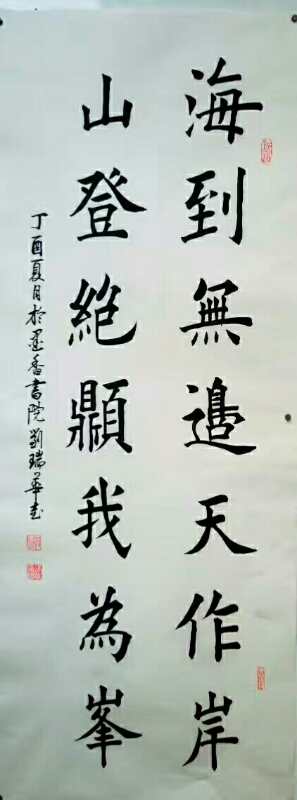 海到無邊天作岸
山登絶顚我為峯
丁酉夏月於墨香書院劉瑞華書